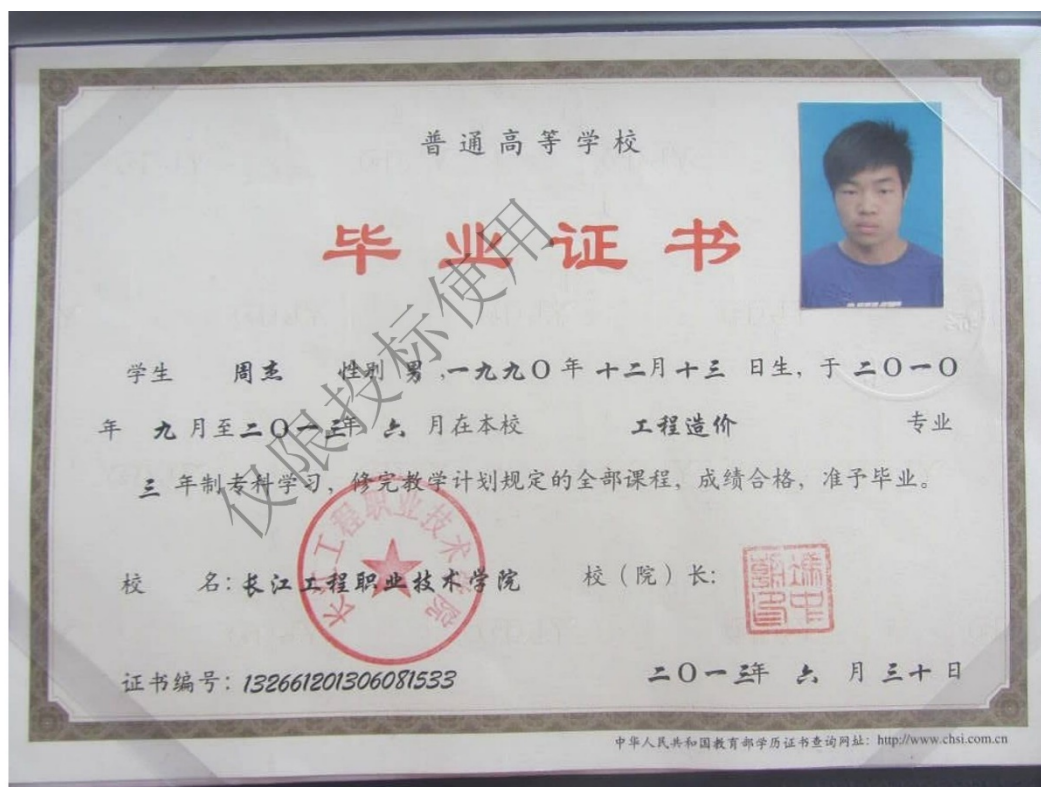 普通高等学校
毕业证书
学生 周杰 性别 男，一九九〇年十二月十三日生，于二〇一〇
年九月至二〇一三年六月在本校 工程造价 专业
三年制专科学习，修完教学计划规定的全部课程，成绩合格，准予毕业。
校 名：长江工程职业技术学院 校（院）长：
长江工程职业技术学院
证书编号：132661201306081533 二〇一三年六月三十日
中华人民共和国教育部学历证书查询网址：http://www.chsi.com.cn
仅限投标使用